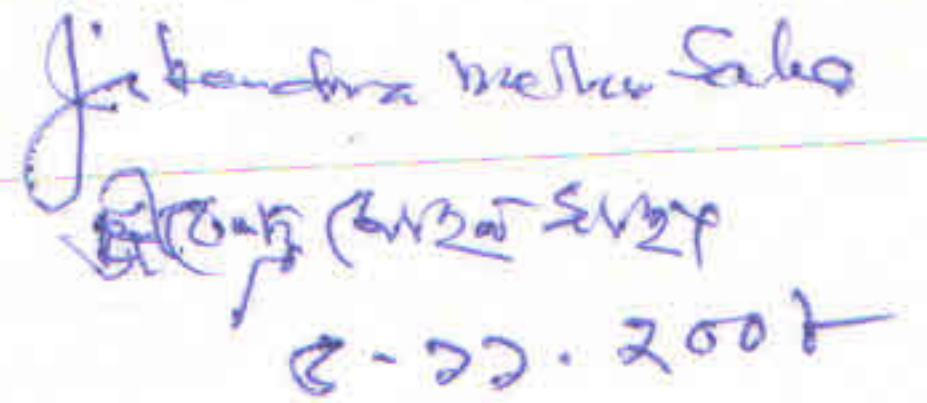 Jitendra Mohan Saha
জিতেন্দ্র মোহন সাহা
৪-১১.২০০৮